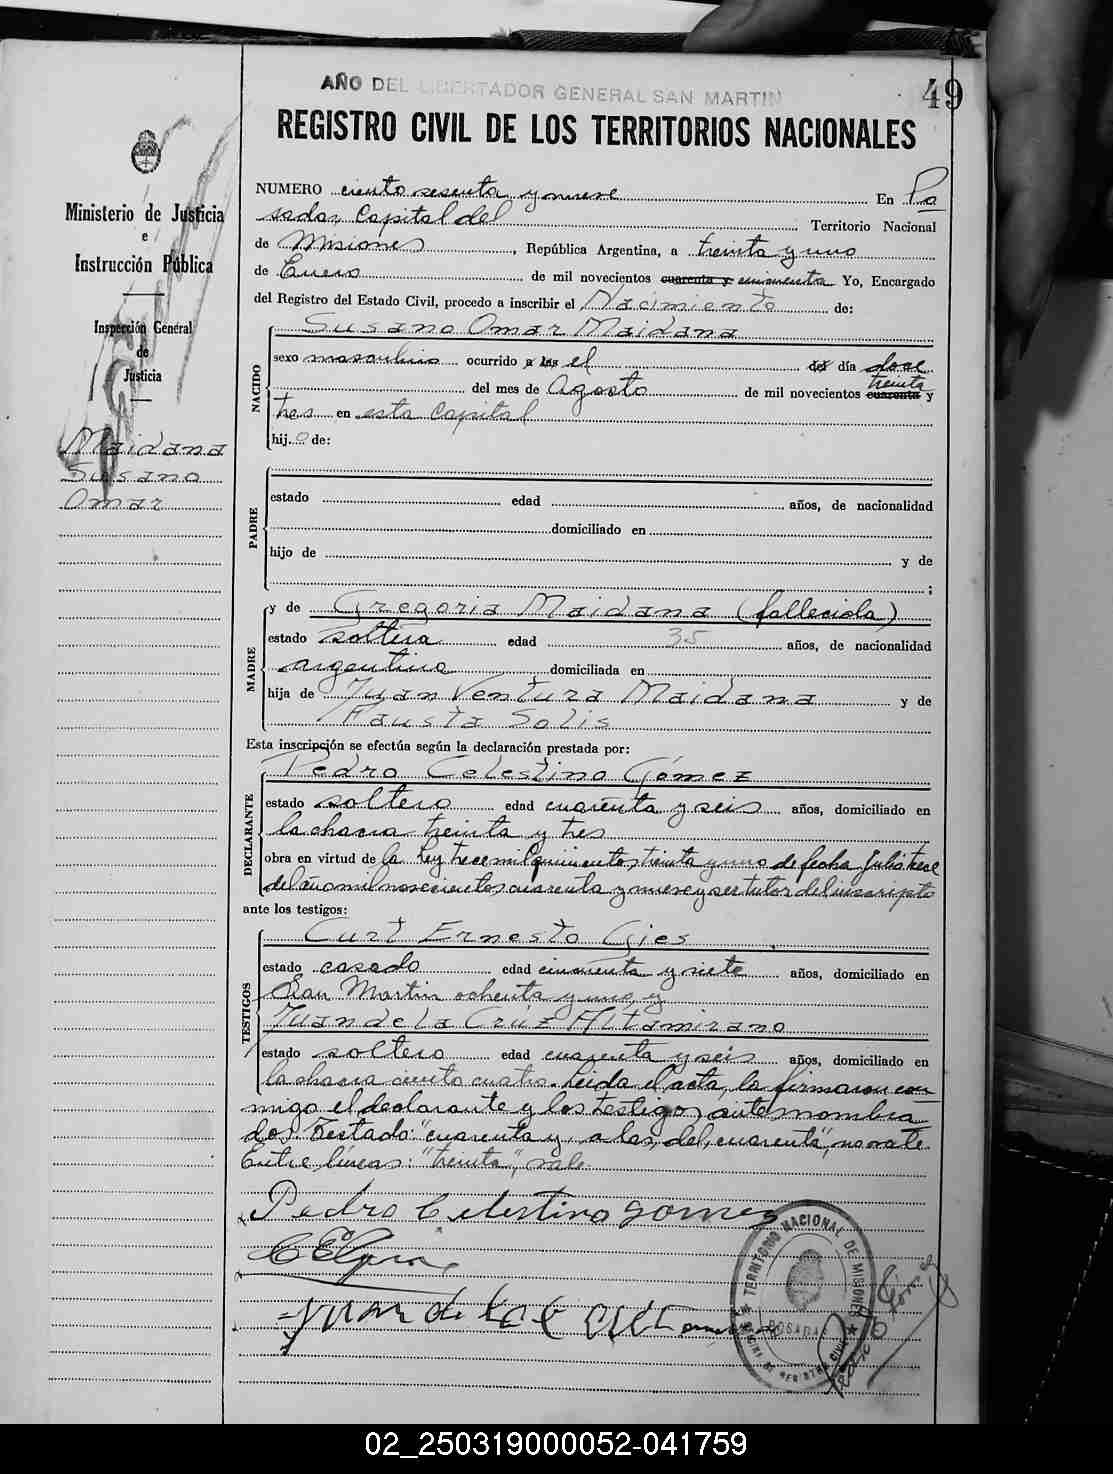 AÑO DEL LIBERTADOR GENERAL SAN MARTIN
49
REGISTRO CIVIL DE LOS TERRITORIOS NACIONALES
Ministerio de Justicia
e
Instrucción Pública
Inspección General
de
Justicia
Maidana
Susano
Omar
NUMERO ciento sesenta y nueve En Po
sadas, Capital del Territorio Nacional
de Misiones, República Argentina, a treinta y uno
de Enero de mil novecientos cuarenta y cincuenta Yo, Encargado
del Registro del Estado Civil, procedo a inscribir el Nacimiento de:
Susano Omar Maidana
NACIDO
sexo masculino ocurrido a las el del día doce
treinta
del mes de Agosto de mil novecientos cuarenta y
tres en esta Capital
hij.o de:
PADRE
estado edad años, de nacionalidad
domiciliado en
hijo de y de
;
MADRE
y de Gregoria Maidana (fallecida)
estado soltera edad 35 años, de nacionalidad
argentina domiciliada en
hija de Juan Ventura Maidana y de
Fausta Solis
Esta inscripción se efectúa según la declaración prestada por:
DECLARANTE
Pedro Celestino Gómez
estado soltero edad cuarenta y seis años, domiciliado en
la chacra treinta y tres
obra en virtud de la Ley trece mil quinientos treinta y uno de fecha Julio trece
del año mil novecientos cuarenta y nueve y ser tutor del inscripto
ante los testigos:
TESTIGOS
Curt Ernesto Gies
estado casado edad cincuenta y siete años, domiciliado en
San Martin ochenta y uno, y
Juan de la Cruz Altamirano
estado soltero edad cuarenta y seis años, domiciliado en
la chacra ciento cuatro. Leida el acta, la firmaron con
migo el declarante y los testigos antes nombra
dos. Testado: "cuarenta y, a las, del, cuarenta", no vale.
Entre líneas: "treinta", vale.
Pedro Celestino Gomez
Juan de la Cruz
TERRITORIO NACIONAL DE MISIONES
POSADAS
OFICINA DE REGISTRO CIVIL
02_250319000052-041759